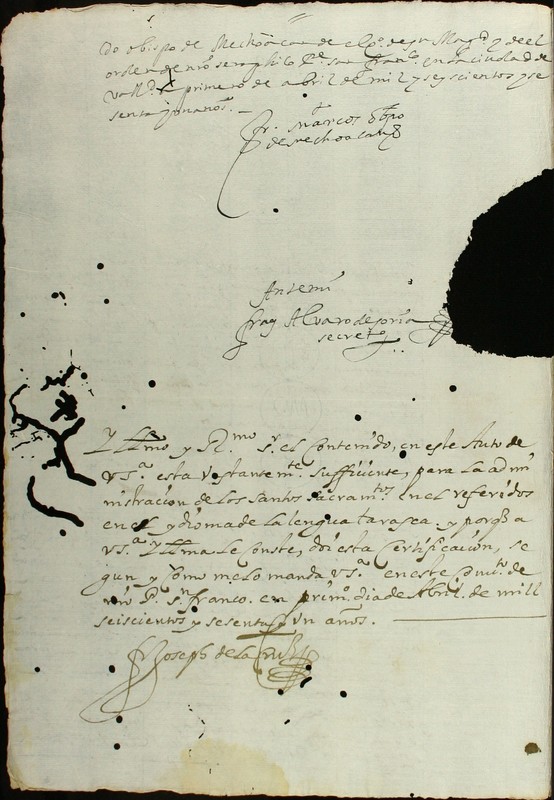 do obispo de Mechoacan de el Co. de su Magd. y de el
orden de nro seraphico Pe. san Franco. en la ciudad de
Valld. primero de abril de mil y seyscientos y se
senta y un anos.
Fr. Marcos Obpo
de Mechoacan
Antemi
fray Alvaro de
secreto
Y Llmo y Rmo sr. el Contenido, en este Auto de
Vsa. esta Vastantemte. suffiçiente, para la admi
nistracion de Los santos sacramtos. En el referidos
en el ydioma de la lengua tarasca. y porq a
Vsa. Y Llma Le Conste, doi esta Certificaçion, se
gun y Como me lo manda Vsa. en este Convto. de
nro P. Sn franco. en primo. dia de Abril. de mill
seiscientos y sesenta y Vn años.
Fr Joseph de la Cruz